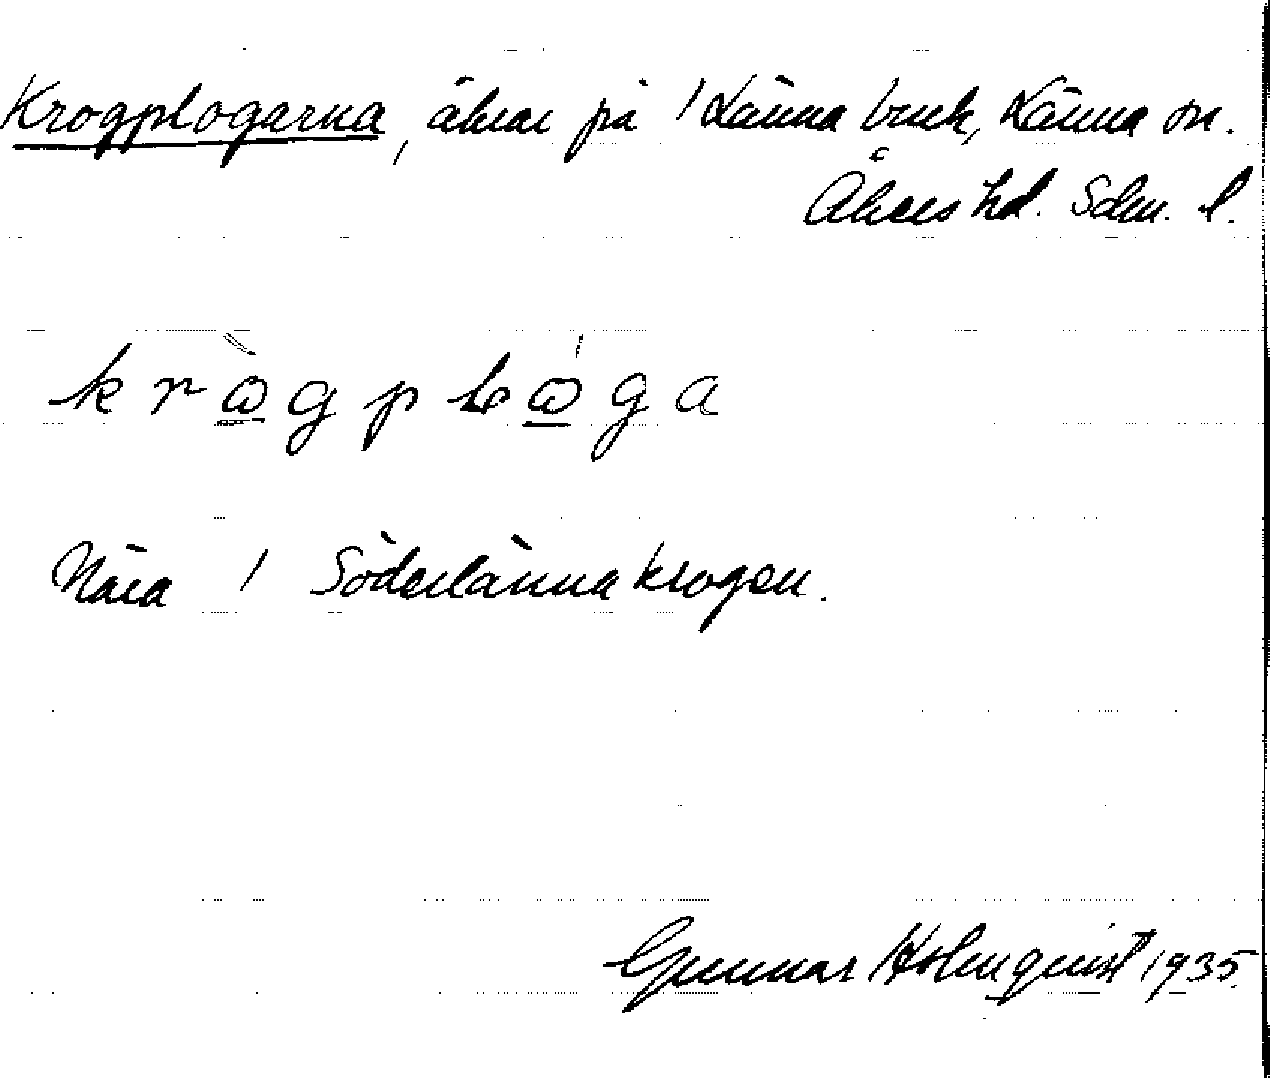 Krogplogarna, åkrar på / Länna bruk, Länna sn.
Åkers hd. Sdm. l.
krὼgplώga
Nära / Söderlänna krogen.
Gunnar Holmquist 1935